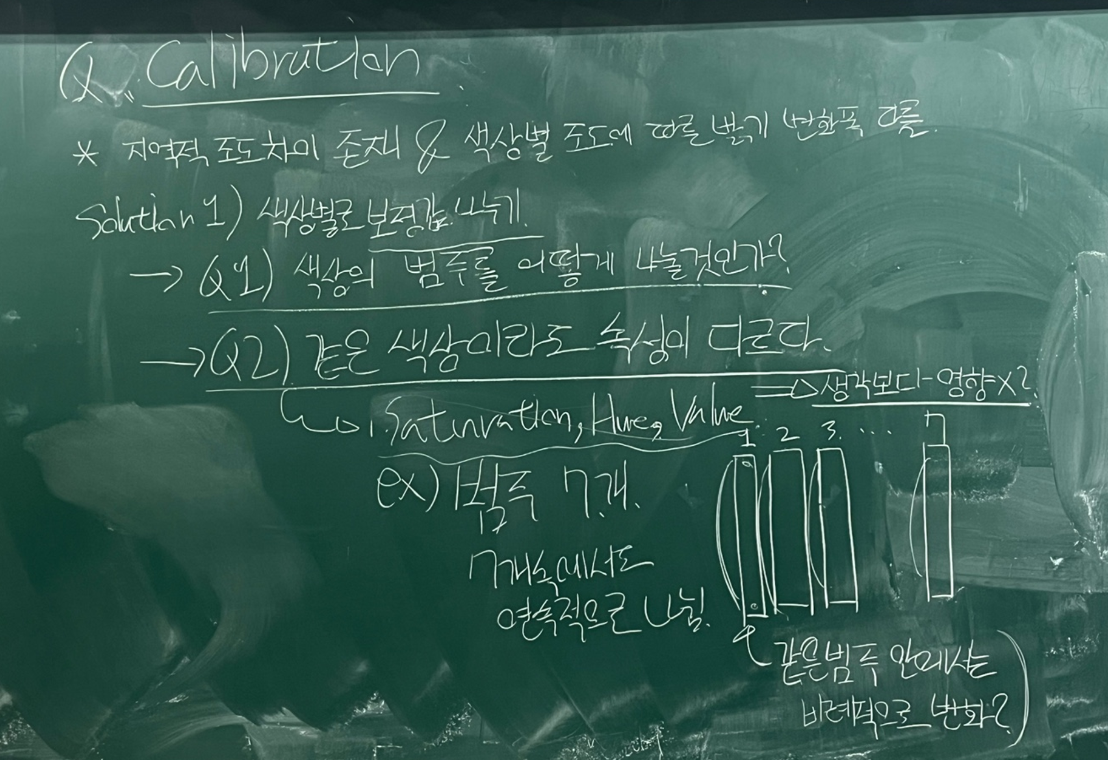 Q. Calibration
* 지역적 조도차이 존재 & 색상별 조도에 따른 밝기 변화폭 다름.
Solution 1) 색상별로 보정값 나누기.
→ Q1) 색상의 범주를 어떻게 나눌것인가?
→ Q2) 같은 색상이라도 속성이 다르다.
Saturation, Hue, Value
⇒ 생각보다 영향 x?
1 2 3 ... 7
ex) 범주 7개.
7개속에서도
연속적으로 나뉨.
같은범주 안에서는
비례적으로 변화?